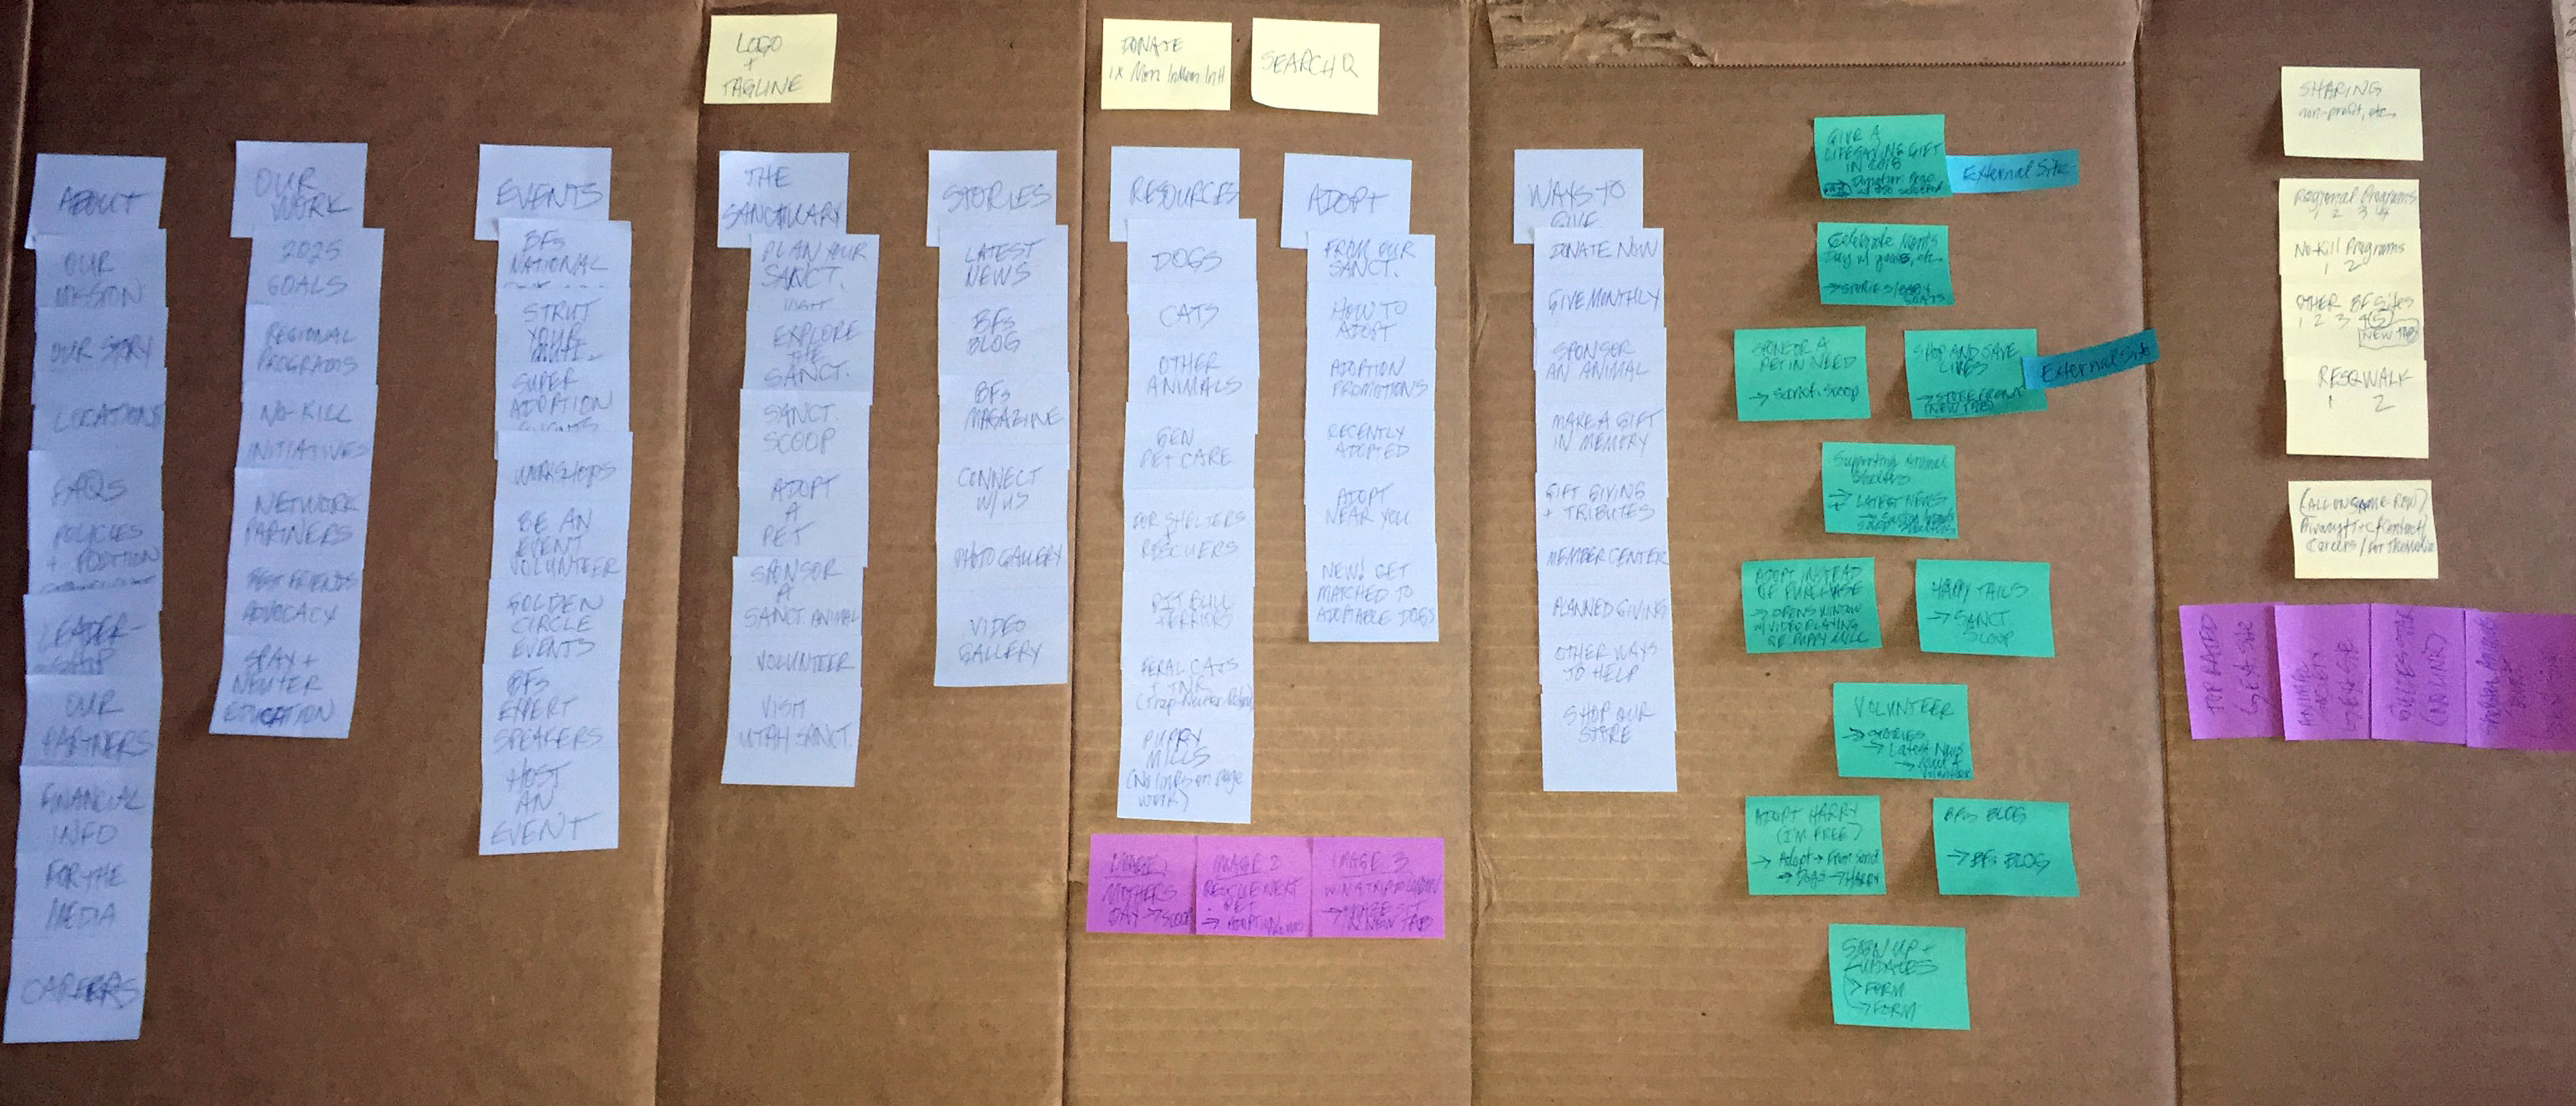 LOGO
+
TAGLINE
DONATE
SEARCH
ABOUT
OUR
MISSION
OUR STORY
LOCATIONS
FAQS
POLICIES
+ POSITION
LEADER-
SHIP
OUR
PARTNERS
FINANCIAL
INFO
FOR THE
MEDIA
CAREERS
OUR
WORK
2025
GOALS
REGIONAL
PROGRAMS
NO-KILL
INITIATIVES
NETWORK
PARTNERS
BEST FRIENDS
ADVOCACY
SPAY +
NEUTER
EDUCATION
EVENTS
BFS
NATIONAL
STRUT
YOUR
MUTT
SUPER
ADOPTION
EVENTS
WORKSHOPS
BE AN
EVENT
VOLUNTEER
GOLDEN
CIRCLE
EVENTS
BFS
EXPERT
SPEAKERS
HOST
AN
EVENT
THE
SANCTUARY
PLAN YOUR
SANCT.
VISIT
EXPLORE
THE
SANCT.
SANCT.
SCOOP
ADOPT
A
PET
SPONSOR
A
SANCT. ANIMAL
VOLUNTEER
VISIT
UTAH SANCT.
STORIES
LATEST
NEWS
BFS
BLOG
BFS
MAGAZINE
CONNECT
W/US
PHOTO GALLERY
VIDEO
GALLERY
RESOURCES
DOGS
CATS
OTHER
ANIMALS
GEN
PET CARE
FOR SHELTERS
+
RESCUERS
PIT BULL
TERRIORS
FERAL CATS
+ TNR
(Trap-Neuter-Return)
PUPPY
MILLS
(No links on page
work)
IMAGE 1
MOTHERS
DAY → SCOOP
IMAGE 2
RESCUE NEXT
PET
→ ADOPTION
IMAGE 3
WIN A TRIP
NEW TAB
ADOPT
FROM OUR
SANCT.
HOW TO
ADOPT
ADOPTION
PROMOTIONS
RECENTLY
ADOPTED
ADOPT
NEAR YOU
NEW! GET
MATCHED TO
ADOPTABLE DOGS
WAYS TO
GIVE
DONATE NOW
GIVE MONTHLY
SPONSER
AN ANIMAL
MAKE A GIFT
IN MEMORY
GIFT GIVING
+ TRIBUTES
MEMBER CENTER
PLANNED GIVING
OTHER WAYS
TO HELP
SHOP OUR
STORE
GIVE A
LIFESAVING GIFT
IN 2018
External Site
Celebrate Moms
SPONSOR A
PET IN NEED
→ Sanct. Scoop
SHOP AND SAVE
LIVES
→ STOREFRONT
(NEW TAB)
External Site
Supporting Animal
Shelters
→ LATEST NEWS
ADOPT INSTEAD
OF PURCHASE
→ OPENS WINDOW
W/VIDEO PLAYING
RE PUPPY MILL
HAPPY TAILS
→ SANCT
SCOOP
VOLUNTEER
→ STORIES
→ Latest News
Volunteer
ADOPT HARRY
(I'M FREE)
→ Adopt → From Sanct
→ Dogs → HARRY
BFS BLOG
→ BFS BLOG
SIGN UP -
UPDATES
→ FORM
→ FORM
SHARING
non-profit, etc
Regional Programs
1 2 3 4
No-Kill Programs
1 2
OTHER BF Sites
1 2 3 4 5
NEW TAB
RESQWALK
1 2
(ALL ON SAME ROW)
Privacy/T+C/Contact/
Careers/For The Media
TOP RATED
ANIMAL
GUIDESTAR
(NO LINK)